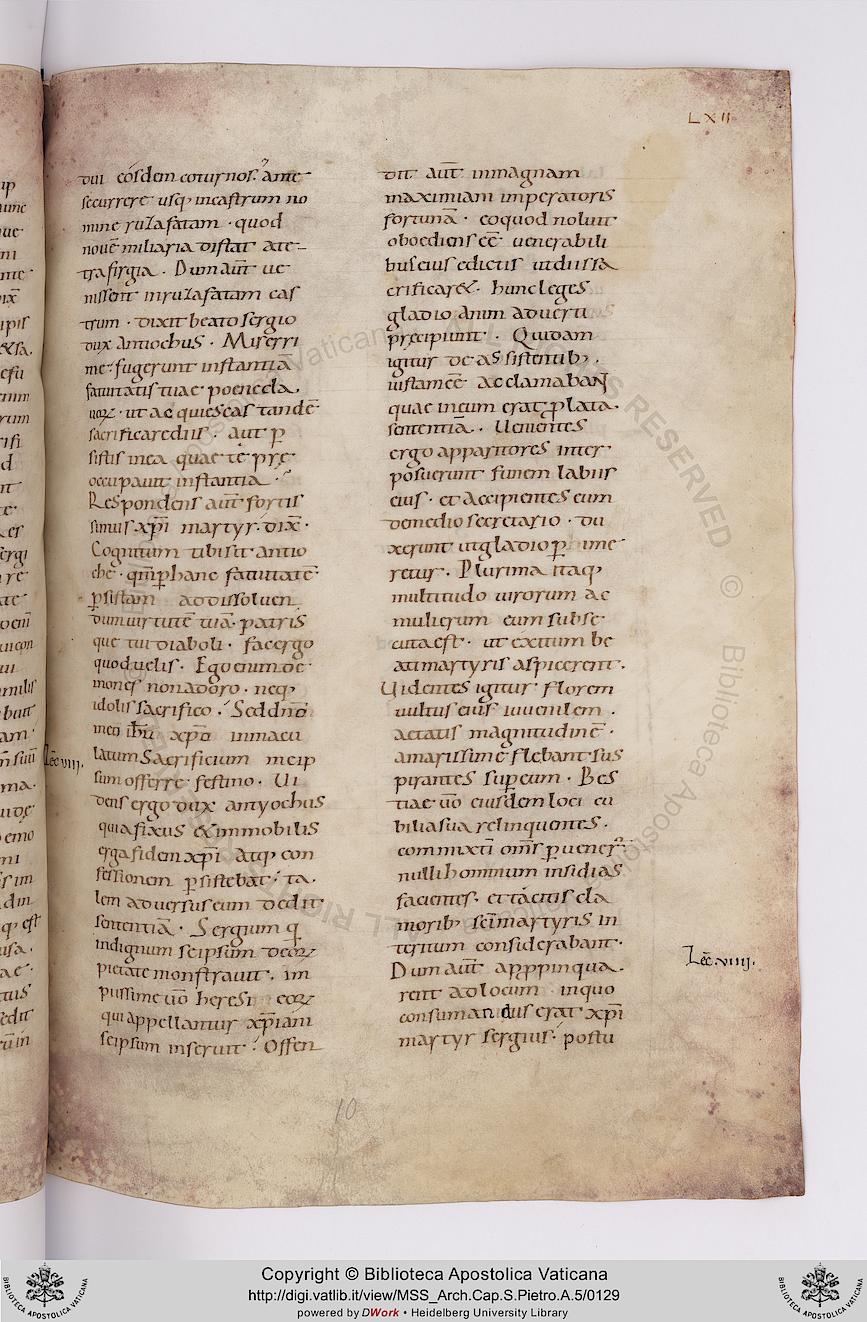 LXII
dui eósdem coturnos. ante
securrere usq; incastrum no
mine ruzafatam · quod
nouē miliaria distat a te
trafirgia. Dum aūt ue
nissent inruzafatam cas
trum · dixit beato sergio
dux antiochus · Miserri
me· fugerunt instantiā
fatuitatis tuae poenela,
· ut ac quiescas tandē
sacrificare diis · aut p̄
sistis inea quae te pre
occupauit instantia ·
Respondens aūt fortis
simus xp̄i martyr · dix̄ ·
Cognitum tibi sit antio
che · qm̄ p̄hanc fatuitatē
p̄sistam addissoluen
dum uirtutē tuā · patris
que tui diaboli · fac ergo
quod uelis · Ego enim de
mones non adoro · neq;
idolis sacrifico · Sed dn̄o
meo ih̄u xp̄o inmacu
latum Sacrificium meip
sum offerre festino · Ui
dens ergo dux antyochus
quia fixus & inmobilis
erga fidem xp̄i atq; con
fessionem p̄sistebat · ta
lem aduersus eum dedit
sententiā · Sergium q̄
indignum seipsum deoꝝ
pietate monstrauit · im
piissime u̅o heresi eoꝝ
qui appellantur xp̄iani
seipsum inseruit · Offen
Lec̄ viii,
dit aūt inmagnam
maximiani imperatoris
fortunā · eo quod noluit
oboediens eē uenerabili
bus eius edictis ut diis sa
crificar& · hunc leges
gladio anim aduerti
precipiunt · Quidam
igitur de assistentib; ·
iustam eē acclamabant
quae ineum erat p̄lata ·
sententiā · Uenientes
ergo apparitores inter
posuerunt funem labiis
eius · et accipientes eum
de medio secretario · du
xerunt ut gladio p̄ ime
retur · Plurima itaq;
multitudo uirorum ac
mulierum eum subse
cuta est · ut exitum be
ati martyris aspicerent ·
Uidentes igitur florem
uultus eius iuuenilem ·
aetatis magnitudinē ·
amarissime flebant sus
pirantes sup̄ eum · Bes
tiae u̅o eiusdem loci cu
bilia sua relinquentes ·
commixti om̄s
nulli hominum insidias
facientes · et tacitis cla
morib; sc̄i martyris in
teritum considerabant ·
Dum aūt app̄pinqua
rent ad locum inquo
consumandus erat xp̄i
martyr sergius · postu
Lec̄ viiii,
10
Copyright © Biblioteca Apostolica Vaticana
http://digi.vatlib.it/view/MSS_Arch.Cap.S.Pietro.A.5/0129
powered by DWork • Heidelberg University Library